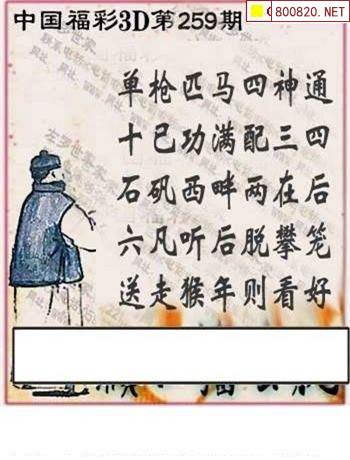 中国福彩3D第259期
800820.NET
单枪匹马四神通
十已功满配三四
石矶西畔两在后
六凡听后脱攀笼
送走猴年则看好